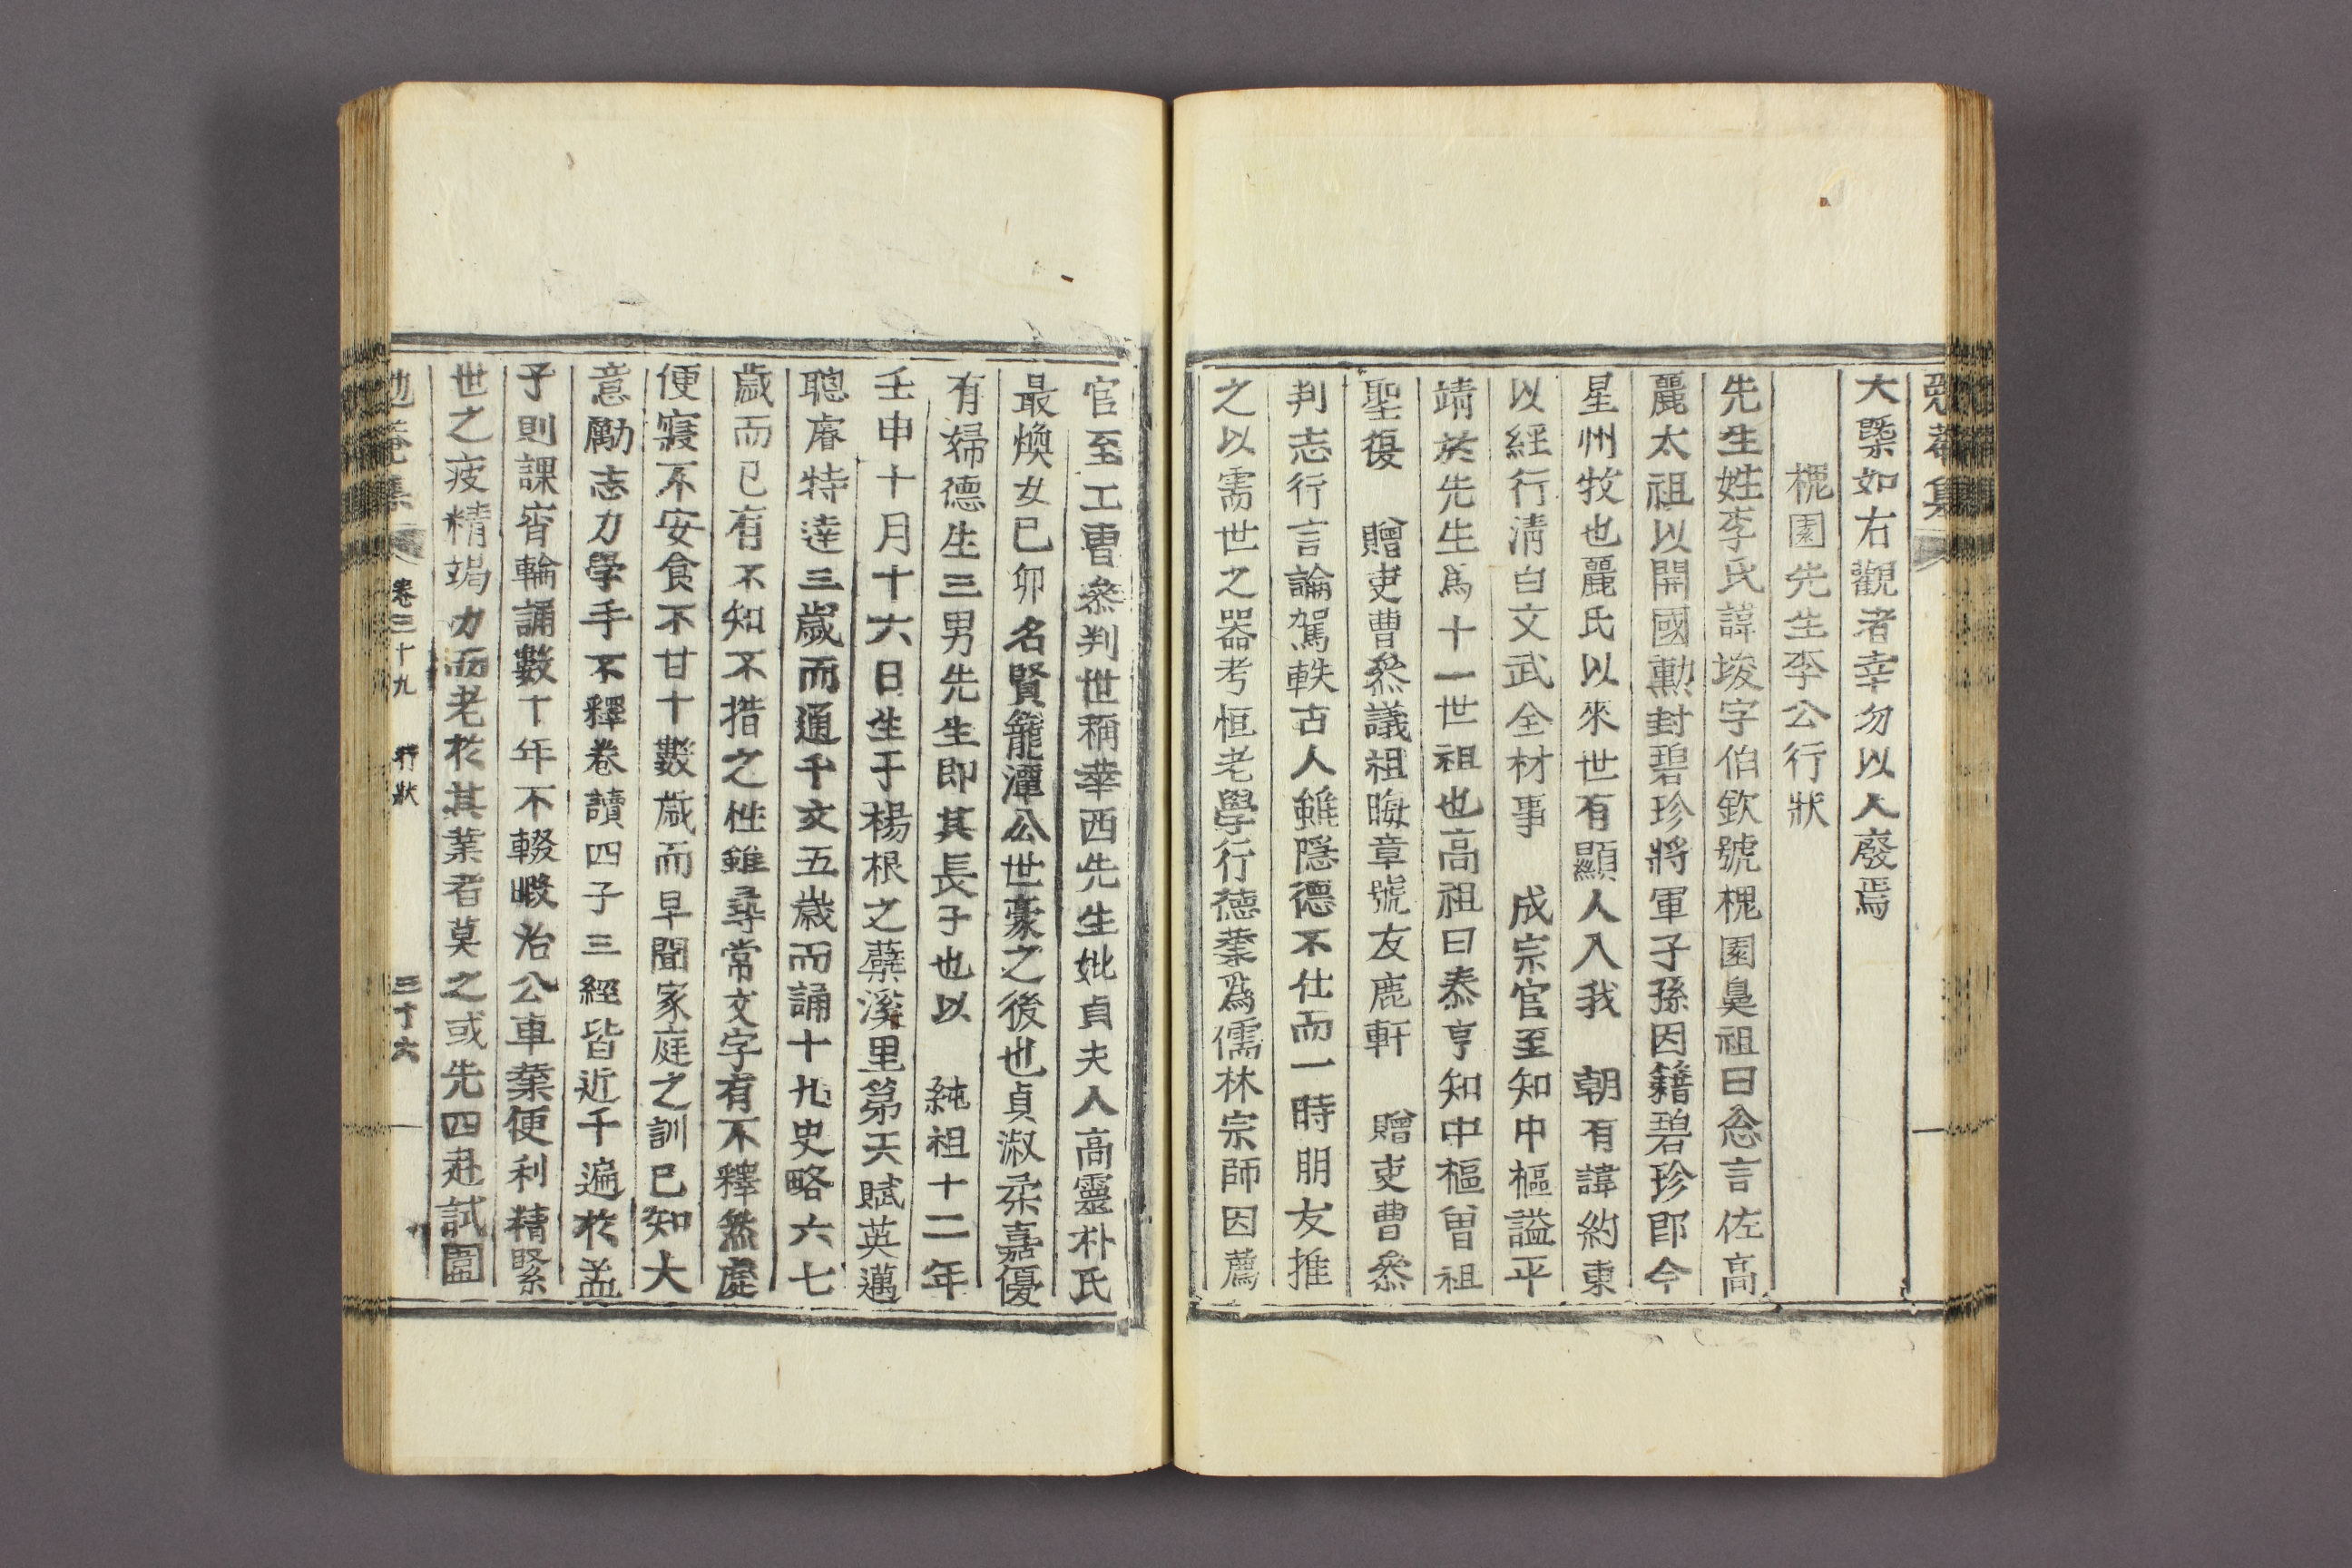 大槩如右觀者幸勿以人廢焉
槐園先生李公行狀
先生姓李氏諱埈字伯欽號槐園鼻祖曰忩言佐高
麗太祖以開國勳封碧珍將軍子孫因籍碧珍卽今
星州牧也麗氏以來世有顯人入我　朝有諱約東
以經行淸白文武全材事　成宗官至知中樞謚平
靖於先生爲十一世祖也高祖曰泰亨知中樞曾祖
聖復　贈吏曹叅議祖晦章號友鹿軒　贈吏曹叅
判志行言論駕軼古人雖隱德不仕而一時朋友推
之以需世之器考恒老學行德業爲儒林宗師因薦
官至工曹叅判世稱華西先生妣貞夫人高靈朴氏
最煥女己卯名賢籠潭公世豪之後也貞淑柔嘉優
有婦德生三男先生卽其長子也以　純祖十二年
壬申十月十六日生于楊根之蘗溪里第天賦英邁
聰睿特達三歲而通千文五歲而誦十九史略六七
歲而已有不知不措之性雖尋常文字有不釋然處
便寢不安食不甘十數歲而早聞家庭之訓已知大
意勵志力學手不釋卷讀四子三經皆近千遍於孟
子則課宵輪誦數十年不輟暇治公車業便利精緊
世之疲精竭力而老於其業者莫之或先四赴試圍
卷三十九　行狀　三十六